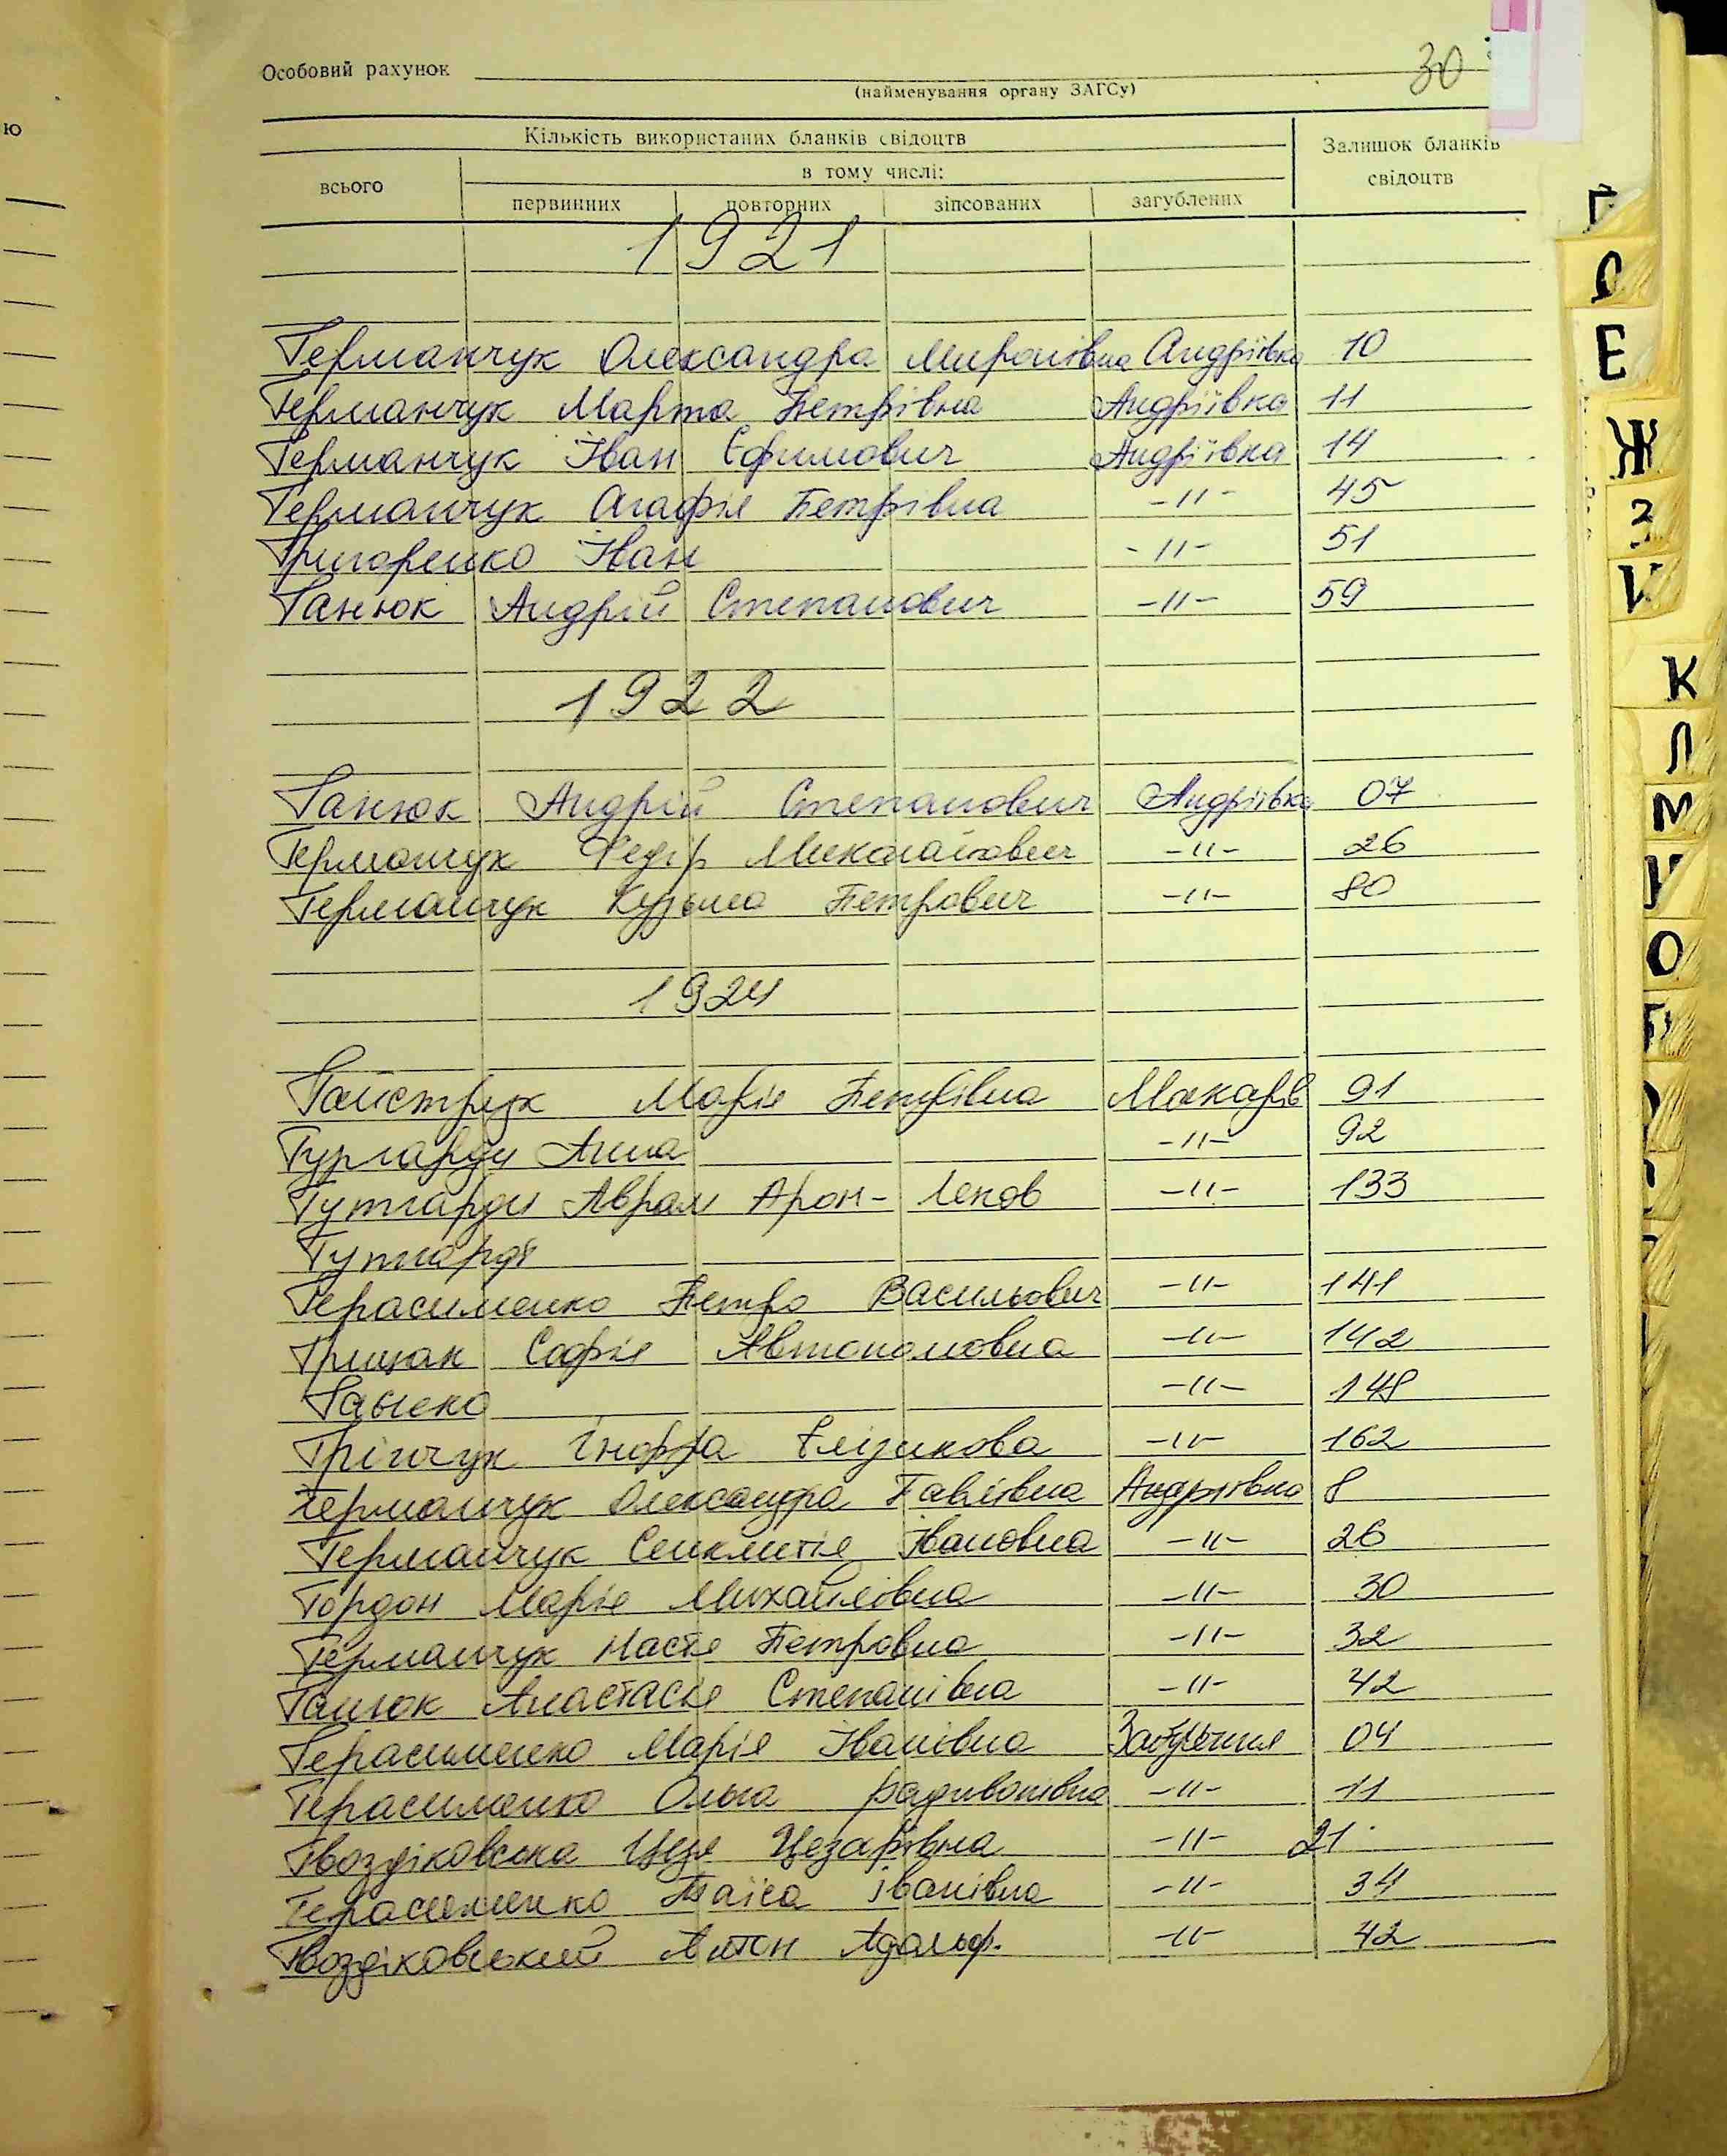 ю
Особовий рахунок
30
(найменування органу ЗАГСу)
Кількість використаних бланків свідоцтв
Залишок бланків свідоцтв
всього
в тому числі:
первинних повторних зіпсованих загублених
1921
Германчук Олександра Миронівна Андріївка 10
Германчук Марта Петрівна Андріївка 11
Германчук Іван Єфимович Андріївка 14
Германчук Агафія Петрівна -//- 45
Григоренко Іван -//- 51
Ганюк Андрій Степанович -//- 59
1922
Ганюк Андрій Степанович Андріївка 07
Германчук Федір Миколайович -//- 26
Германчук Кузьма Петрович -//- 80
1924
Гайструк Марія Петрівна Макарів 91
Анна -//- 92
Гутгарди Аврам Арон- -//- 133
Гутгарді
Герасименко Петро Васильович -//- 141
Грицак Софія Автономовна -//- 142
-//- 148
Грінчук -//- 162
Германчук Олександра Павлівна Андріївка 8
Германчук Сенклитія Івановна -//- 26
Гордон Марія Михайлівна -//- 30
Германчук Настя Петровна -//- 32
Ганюк Анастасія Степанівна -//- 42
Герасименко Марія Іванівна Забуяння 04
Герасименко Ольга Радивонівна -//- 11
Гвоздіковська Цеця Цезарівна -//- 21
Герасименко Таїса Іванівна -//- 34
Гвоздіковський Антон Адольф. -//- 42
Г
Е
Ж
З
К
Л
М
О
П